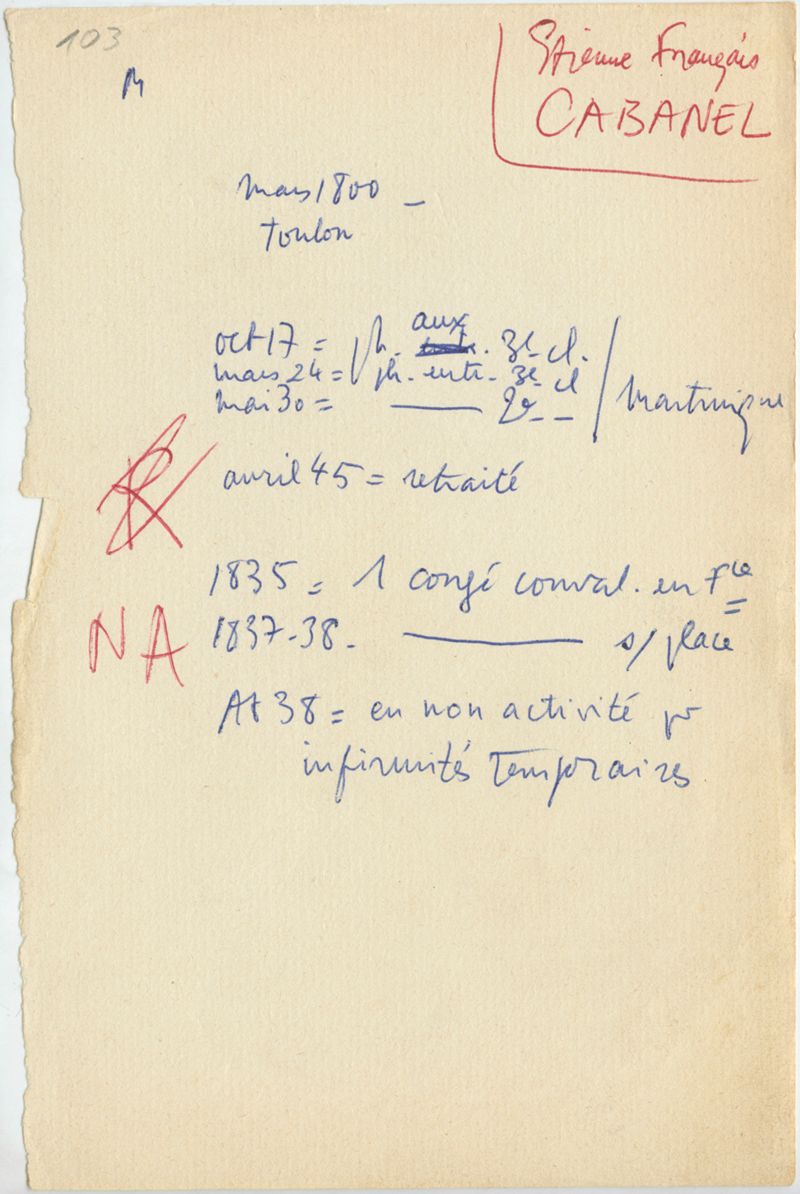 103
M
Etienne François
CABANEL
mars 1800 _
Toulon
oct 17 = ph. aux. 3e cl.
mars 24 = ph. entr. 3e cl
mai 30 = ——— 2e _ _
Martinique
avril 45 = retraité
1835 = 1 congé conval. en Fce
NA
1837-38. ——— s/ place
At 38 = en non activité pr
infirmités temporaires